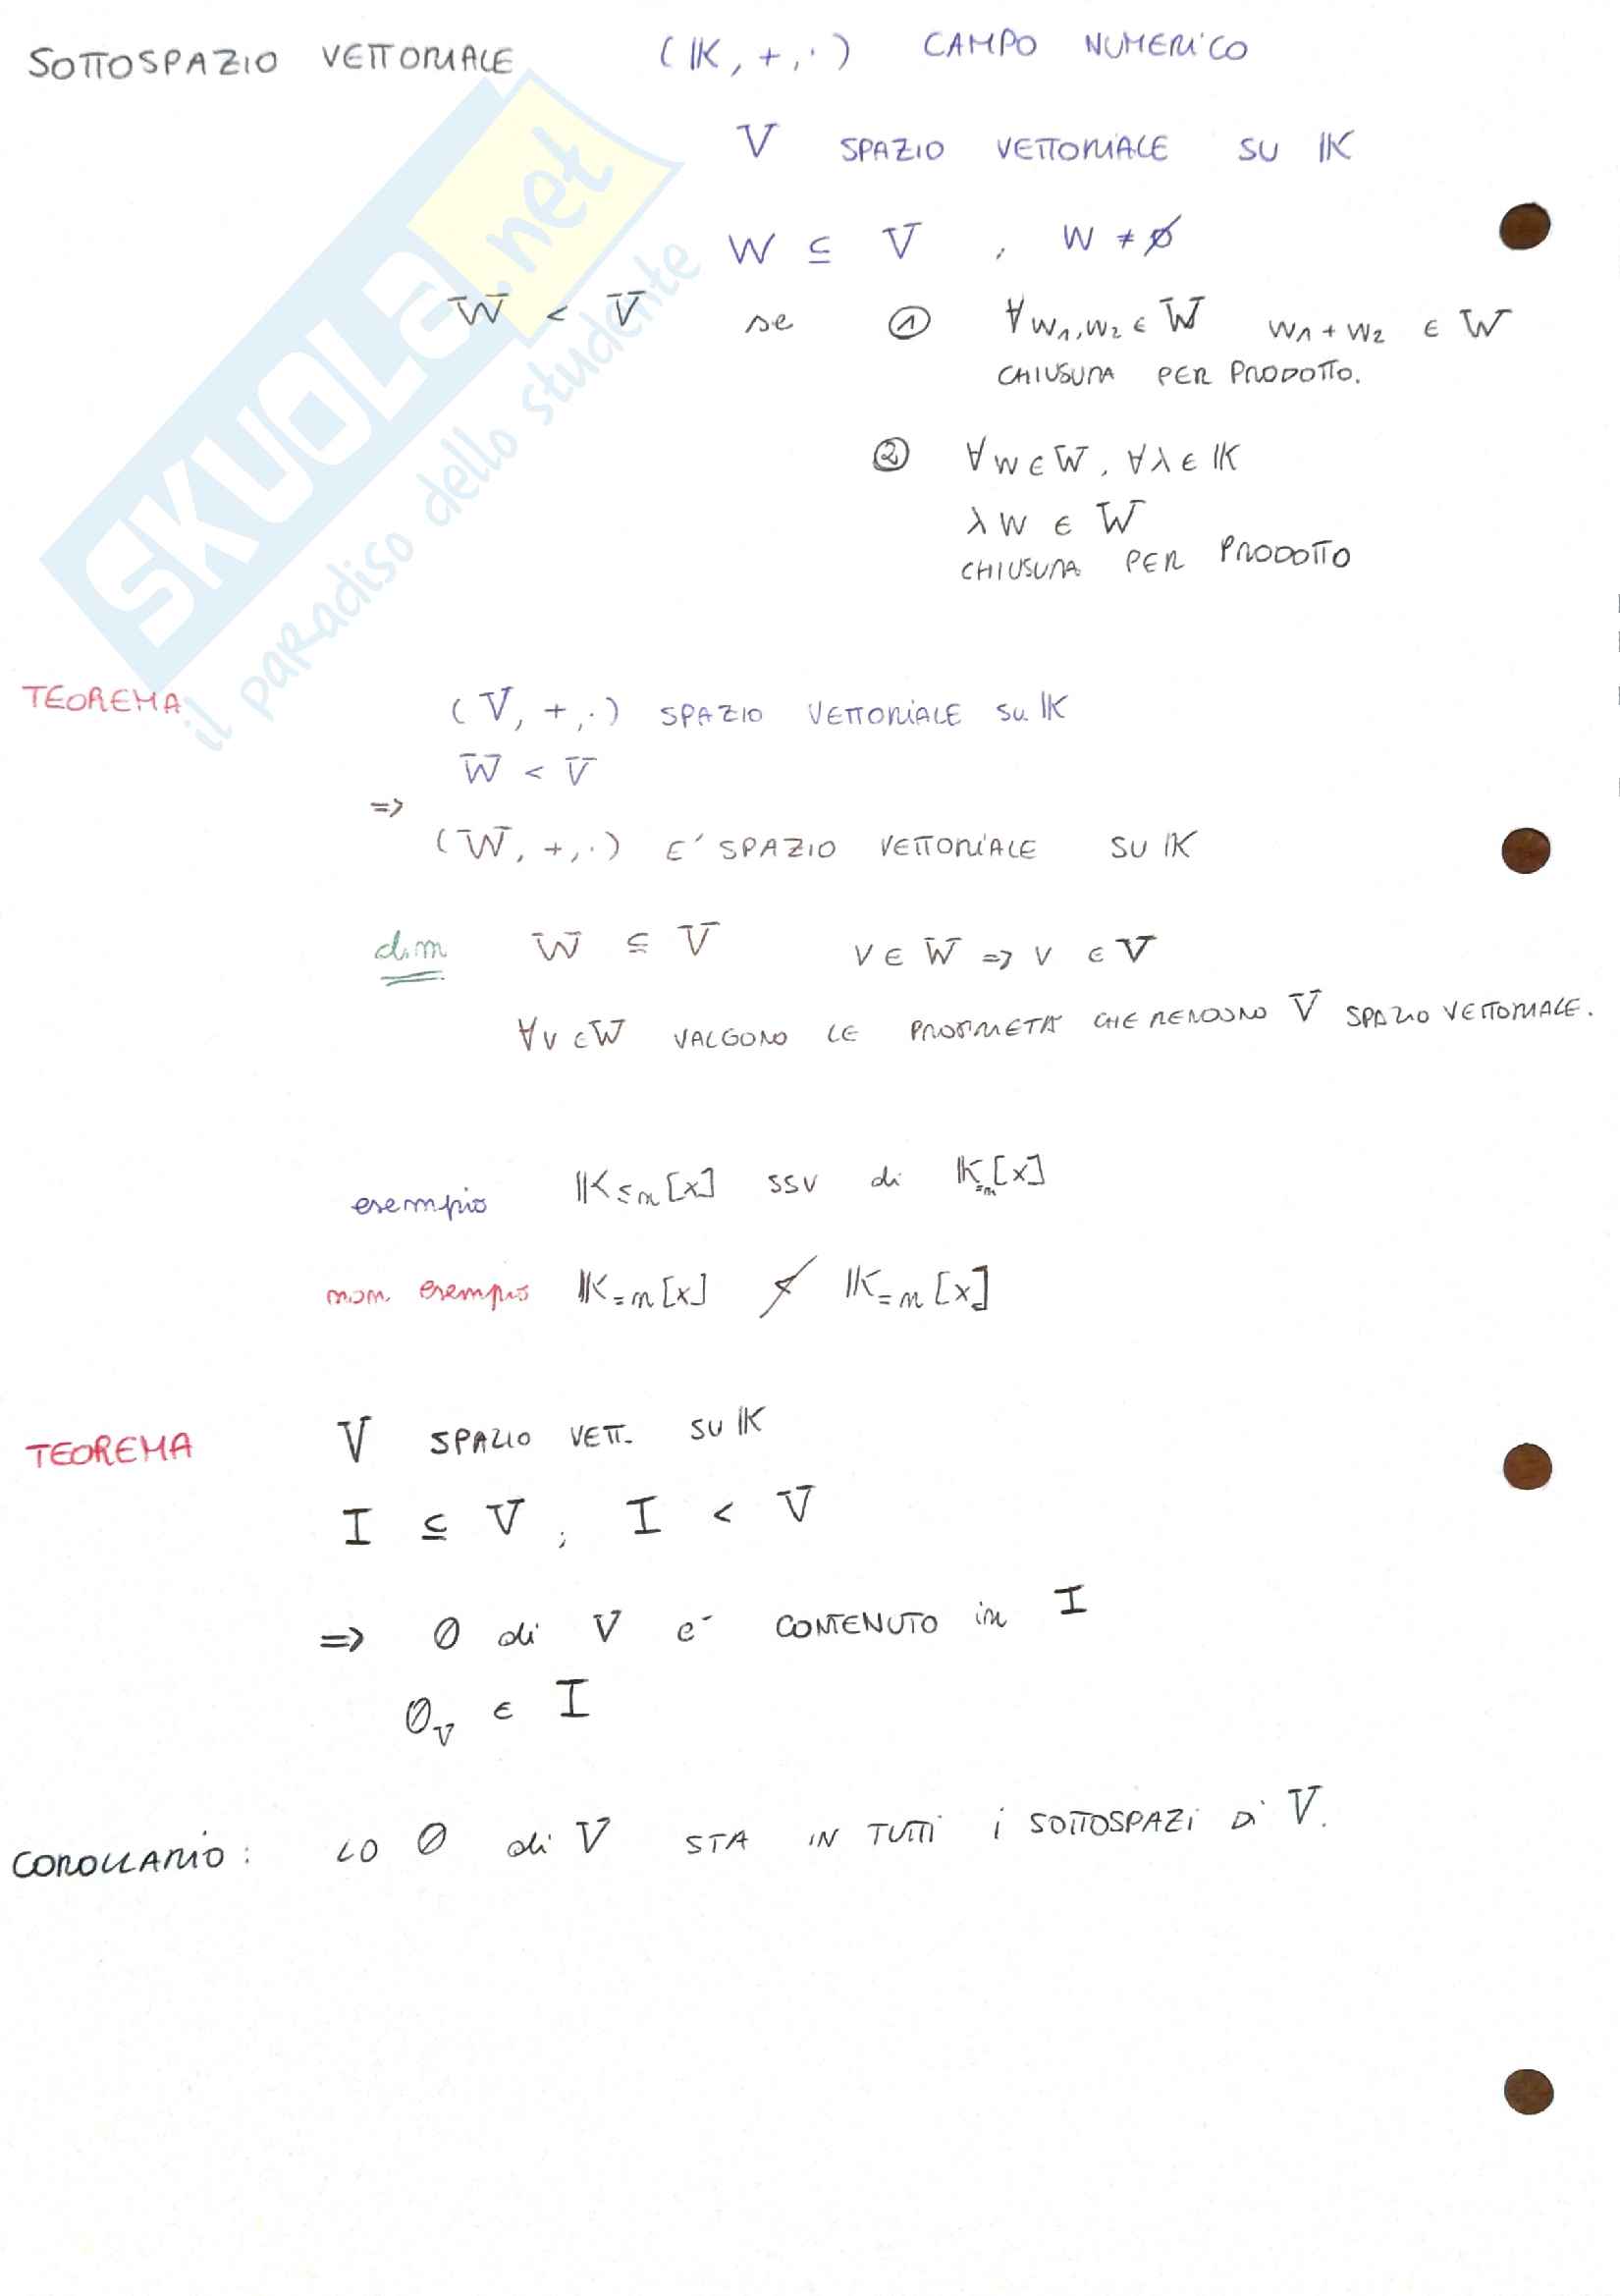 SOTTOSPAZIO VETTORIALE (K, +, ·) CAMPO NUMERICO
V SPAZIO VETTORIALE SU K
W ⊆ V , W ≠ ∅
W < V se ① ∀ w₁, w₂ ∈ W w₁ + w₂ ∈ W
CHIUSURA PER PRODOTTO.
② ∀ w ∈ W, ∀ λ ∈ K
λ w ∈ W
CHIUSURA PER PRODOTTO
SKUOLA.net
il paradiso dello studente
TEOREMA (V, +, ·) SPAZIO VETTORIALE SU K
W < V
=>
(W, +, ·) E' SPAZIO VETTORIALE SU K
dim W ⊆ V v ∈ W => v ∈ V
∀ v ∈ W VALGONO LE PROPRIETA' CHE RENDONO V SPAZIO VETTORIALE.
esempio K≤n[x] ssv di K=n[x]
non esempio K=n[x] ≮ K=n[x]
TEOREMA V SPAZIO VETT. SU K
I ⊆ V, I < V
=> 0 di V e' CONTENUTO in I
0_V ∈ I
COROLLARIO: LO 0 di V STA IN TUTTI i SOTTOSPAZI DI V.